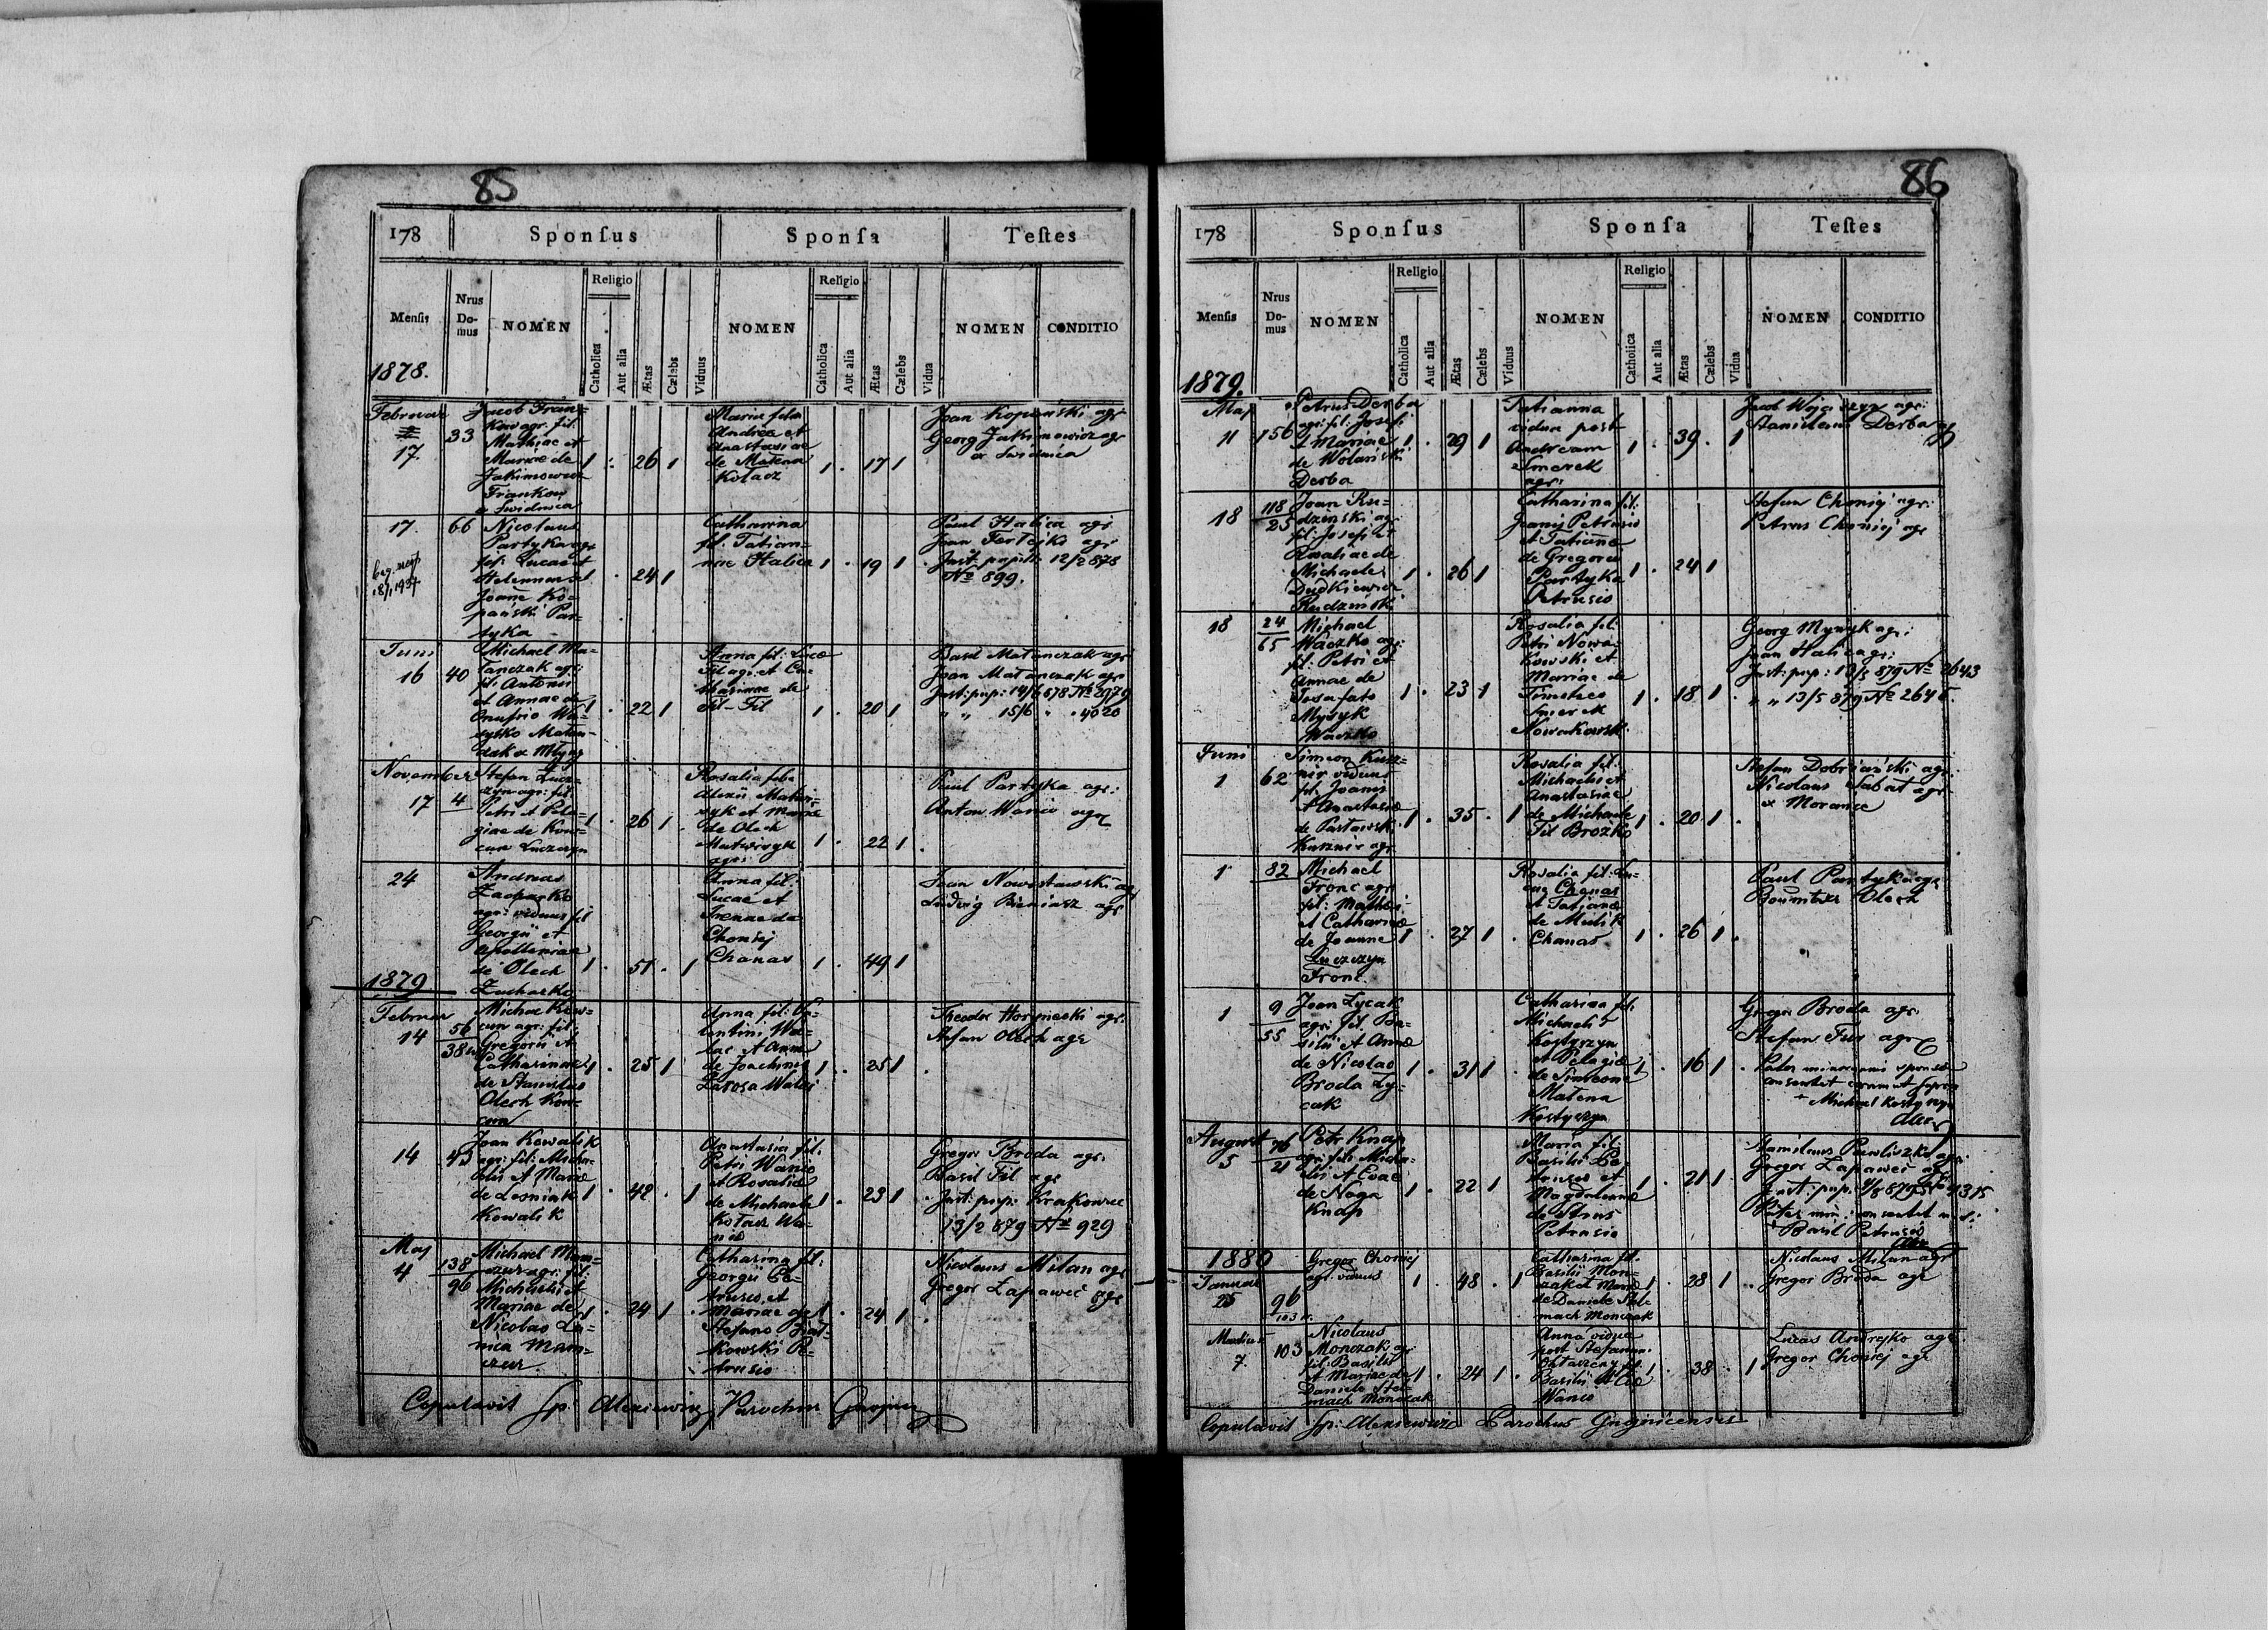 85
178
Sponsus
Sponsa
Testes
Mensis
Nrus Domus
NOMEN
Religio
Catholica
Aut alia
Ætas
Cælebs
Viduus
NOMEN
Religio
Catholica
Aut alia
Ætas
Cælebs
Vidua
NOMEN
CONDITIO
1878.
Februar
17.
33
Jacob Fran=
kow agr. fil.
Mathiae et
Mariae de
Jakimowicz
Frankow
a Swidnica
1
26
1
Maria filia
Andreae et
Anastasiae
de Matena
Kotacz
1
17
1
Joan Kopański agr
Georg Jakimowicz agr
a Swidnica
17.
66
Nicolaus
Partyka agr
fil. Lucae et
Helennae
Joane Ko=
pański Par=
tyka
24
1
Catharina
fil. Tatian=
nae Halica
1
19
1
Paul Halica agr
Joan Fertejko agr
Inst. pupill. 12/2 878
No 899.
Juni
16
40
Michael Ma=
tanczak agr.
fil. Antonii
et Annae de
Onufrio
22
1
Anna fil. Lucae
Fil agr. et Ca=
tharinae de
Fil - Fil
1
20
1
Basil Matanczak agr
Joan Matanczak agr
Inst. pup: 14/6 878 No 3979
" " 15/6 " " 4020
November
17
4
Stefan Lucz=
czyn agr: fil.
Petri et Pela=
giae de Kow=
cun Luczczyn
1
26
1
Rosalia filia
Alexii
et Mariae
de Olech
agr:
1
22
1
Paul Partyka agr:
Anton Wanio agr
24
Andreas
Zacharko
agr: viduus fil
Georgii et
Apolleniae
de Olech
Zacharko
1
51
1
Anna fil.
Lucae et
Irenae de
Choniej
Chanas
1
49
1
Joan Nowostawski agr
Ludwig Bieniasz agr
1879
Februar
14
56
38
Michael Kow=
cun agr: fil.
Gregorii et
Catharinae
de Stanislao
Olech Kow=
cun
1
25
1
Anna fil: Va=
lentini Wa=
lac et Anna
de Joachimo
Zarosa Walac
1
25
1
Theodor Horynecki agr.
Stefan Olech agr
14
45
Joan Kowalik
agr: fil: Micha=
elis et Mariae
de Lesniak
Kowalik
1
42
1
Anastasia fil.
Petri Wanio
et Rosalia
de Michaele
Kotacz Wa=
nio
1
23
1
Gregor Broda agr.
Basil Fil agr
Inst: pup: Krakowec
13/2 879 No 929
May
4
138
96
Michael Mam=
czur agr: fil:
Michaelis et
Mariae de
Nicolao
Mam=
czur
1
24
1
Catharina fil:
Georgii Pe=
trusio et
Mariae de
Stefano
Kowski Pe=
trusio
24
1
Nicolaus Milan agr
Gregor Lapawec agr
Copulavit Jp: Alexiewicz Parochus
86
178
Sponsus
Sponsa
Testes
Mensis
Nrus Domus
NOMEN
Religio
Catholica
Aut alia
Ætas
Cælebs
Viduus
NOMEN
Religio
Catholica
Aut alia
Ætas
Cælebs
Vidua
NOMEN
CONDITIO
1879.
May
11
156
Petrus Derba
agr: fil: Josefi
et Mariae
de Wolański
Derba
1
29
1
Tatianna
vidua post
Andream
Smerek
agr:
1
39
1
agr:
Stanislaus Derba agr
18
118
25
Joan Ru=
dzenski agr.
fil. Josefi et
Rosaliae de
Michaele
Dudkiewicz
Rudzinski
1
26
1
Catharina fil:
Joanis Petrusio
et Tatianae
de Gregorio
Partyka
Petrusio
1
24
1
Stefan Choniej agr:
Petrus Choniej agr
18
24
65
Michael
Waczko agr:
fil. Petri et
Annae de
Josafato
Mynyk
Waczko
1
23
1
Rosalia fil:
Petri Nowa=
kowski et
Mariae de
Timoteo
Smerek
Nowakowsk.
1
18
1
Georg Mynyk agr:
Joan Halica agr:
Inst: pup: 13/5 879 No 2643
" " 13/5 879 No 2645.
Juni
1
62
Simeon Kusz=
nir viduus
fil. Joanis
et Anastasiae
de
Kusznir agr
1
35
1
Rosalia fil.
Michaelis et
Anastasiae
de Michaele
Fil Brozko
1
20
1
Stefan Dobriański agr.
Nicolaus Sabat agr
ex Morance
1
82
Michael
Fronc agr
fil: Mathaei
et Catharinae
de Joanne
Luczczyn
Fronc
1
27
1
Rosalia fil: Lu=
cae Chanas
et Tatianae
de Mielnik
Chanas
1
26
1
Paul Partyka agr
Olech
1
9
55
Joan Lycak
agr: fil. Ba=
silii et Annae
de Nicolao
Broda Ly=
cak
1
31
1
Catharina fil.
Michaelis
Kostyrzyn
et Pelagiae
de Simeone
Matena
Kostyrzyn
1
16
1
Gregor Broda agr.
Stefan Fur agr
Pater minorennis sponsae
consentit coram ut supra
+ Michael Kostyrzyn
August
5
76
21
Petr Knap
agr: fil: Micha=
elis et Evae
de Noga
Knap
1
22
1
Maria fil.
Basilii Pe=
trusio et
Magdalennae
de Strus
Petrusio
1
21
1
Stanislaus Pawliszko agr.
Gregor Lapawec agr
Inst. pup.
Pater min: consentit
+ Basil Petrusio
1880
Januar
25
96
103
Gregor Choniej
agr. viduus
1
48
1
Catharina fil.
Basilii Mon=
czak et Mariae
de Daniele Stel=
mach Monczak
1
28
1
Nicolaus Milan agr
Gregor Broda agr
Martius
7.
103
Nicolaus
Monczak agr
fil: Basilii
et Mariae de
Daniele Stel=
mach Monczak
1
24
1
Anna vidua
post Stefanum
Basilii et
Wanio
38
1
Lucas Andrejko agr
Gregor Choniej agr
Copulavit Jp: Alexiewicz Parochus Gnojnicensis